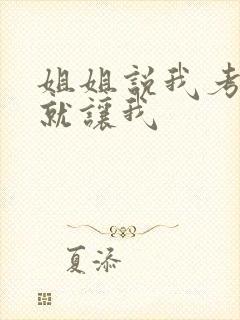 姐姐説我考
就讓我
夏添